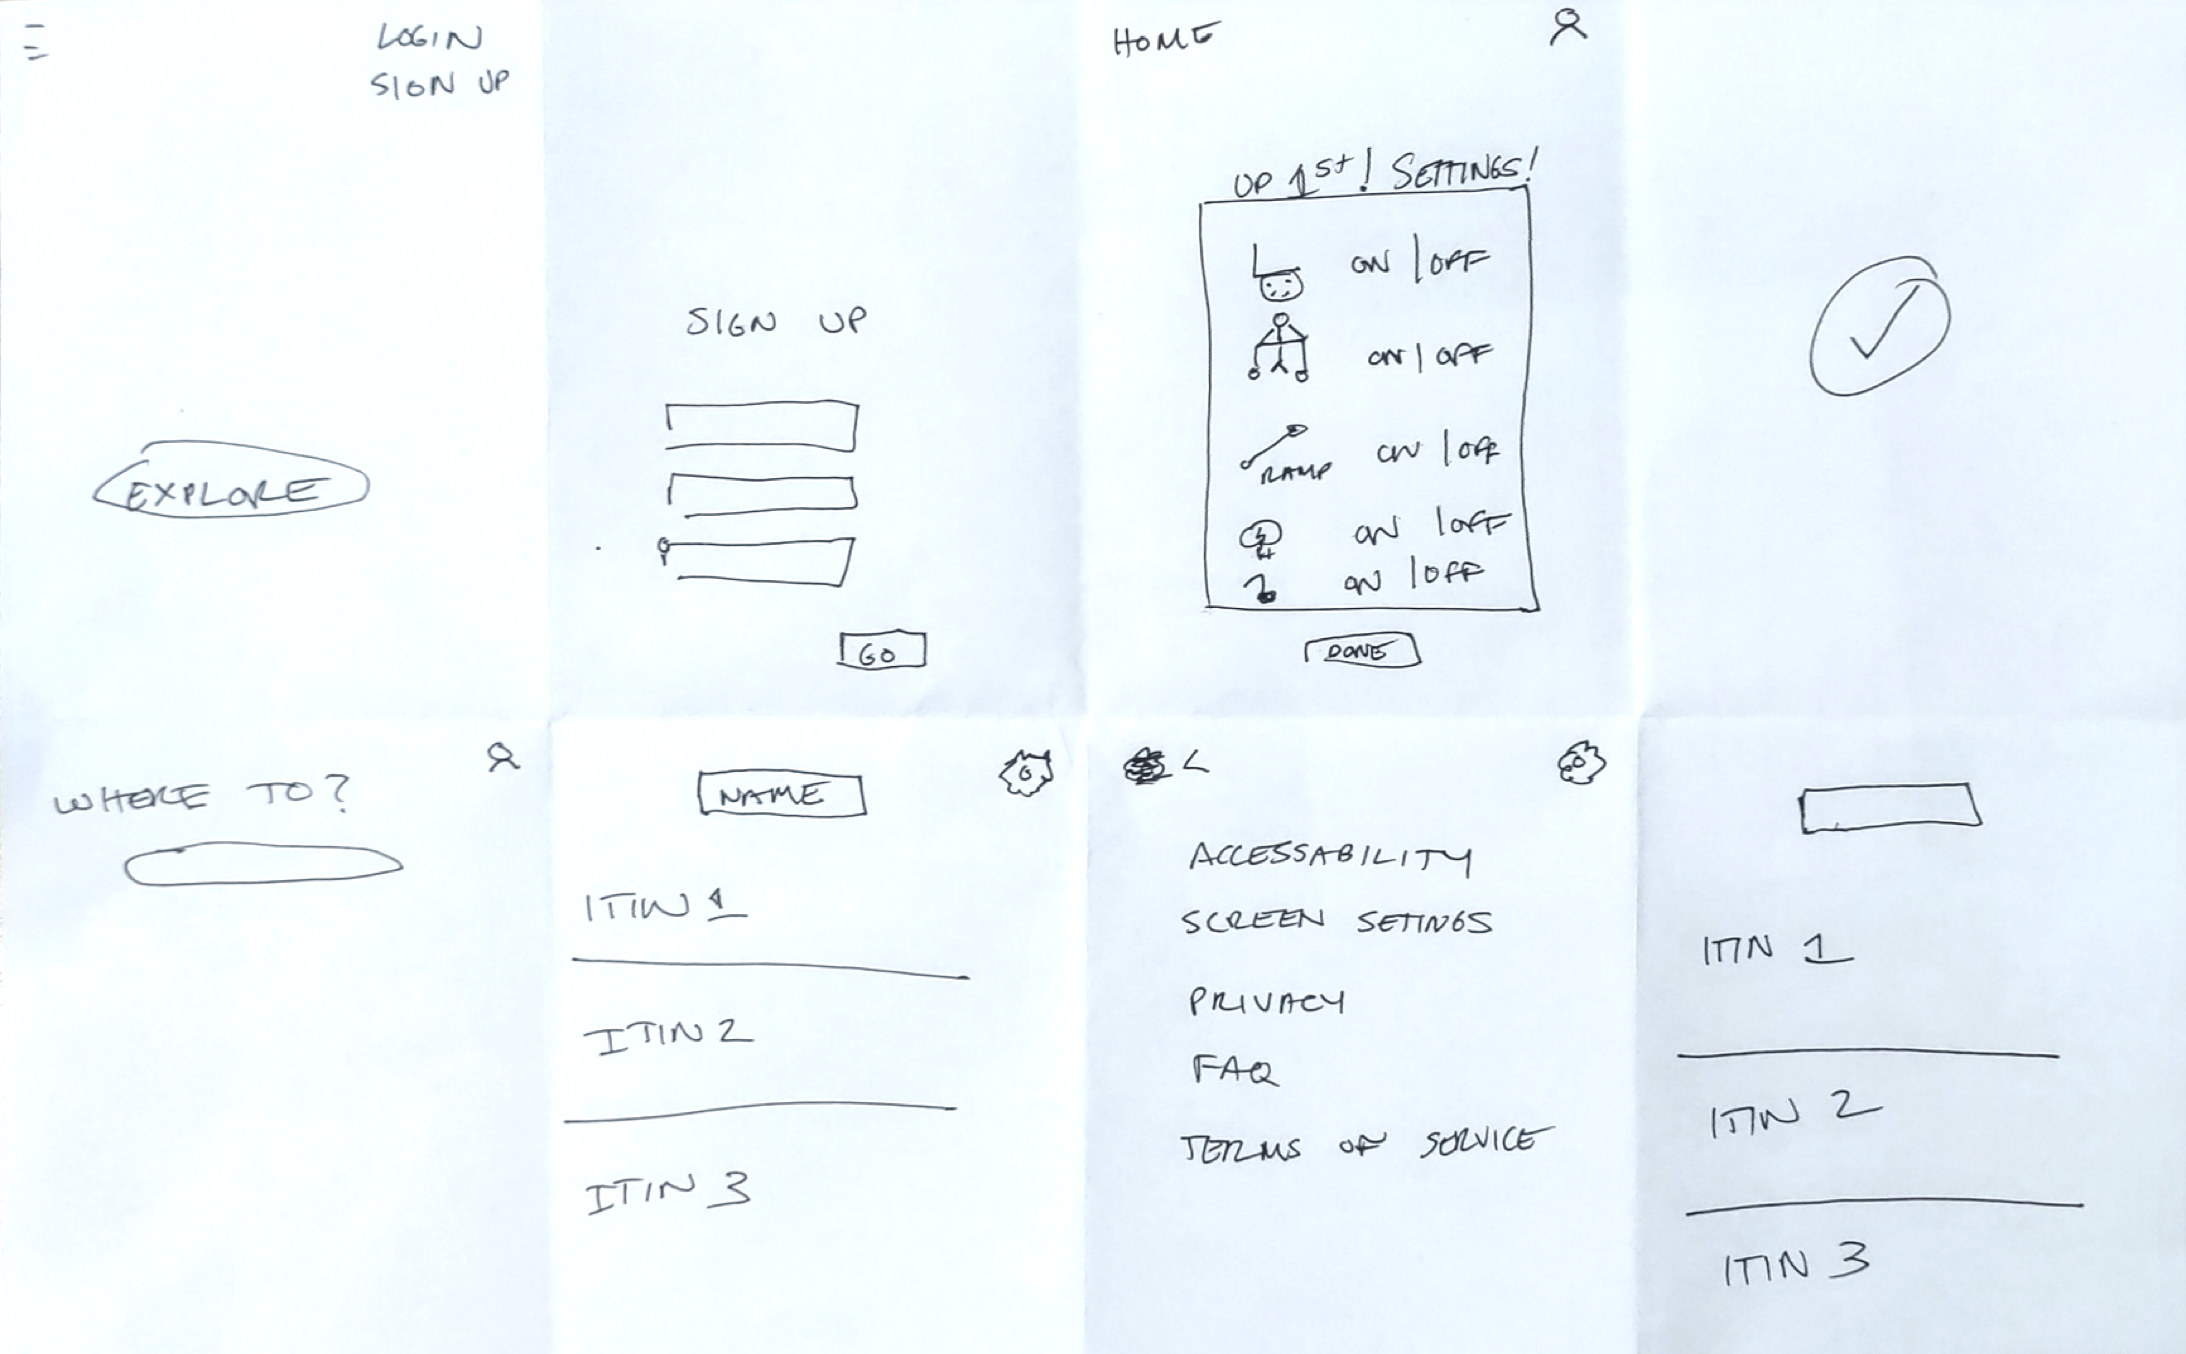 LOGIN
SIGN UP
EXPLORE
SIGN UP
GO
HOME
UP 1st! SETTINGS!
ON | OFF
ON | OFF
RAMP ON | OFF
ON | OFF
ON | OFF
DONE
WHERE TO?
NAME
ITIN 1
ITIN 2
ITIN 3
<
ACCESSABILITY
SCREEN SETINGS
PRIVACY
FAQ
TERMS OF SERVICE
ITIN 1
ITIN 2
ITIN 3